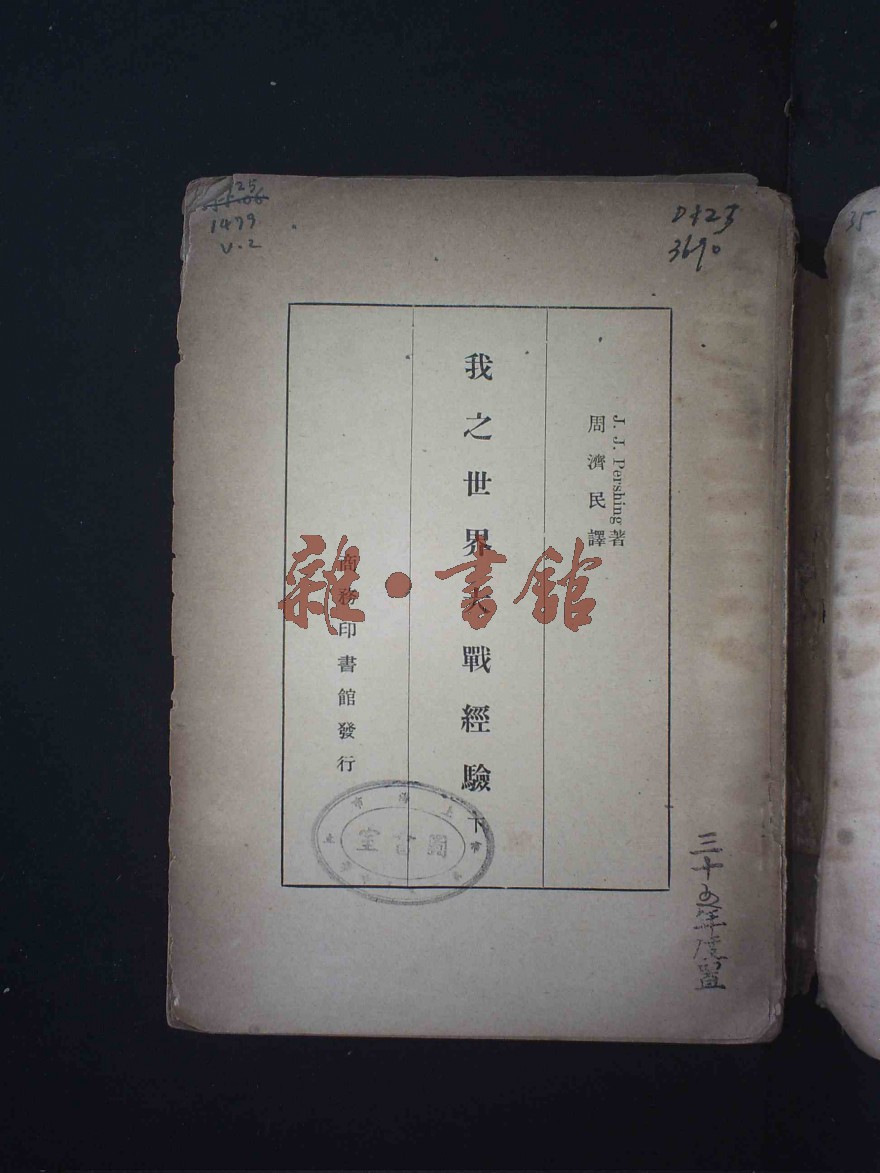 25
1479
v.2
D525
3690
35
J. J. Pershing 著
周濟民譯
我之世界大戰經驗 下
商務印書館發行
雜·書館
圖書室
三十五年度置